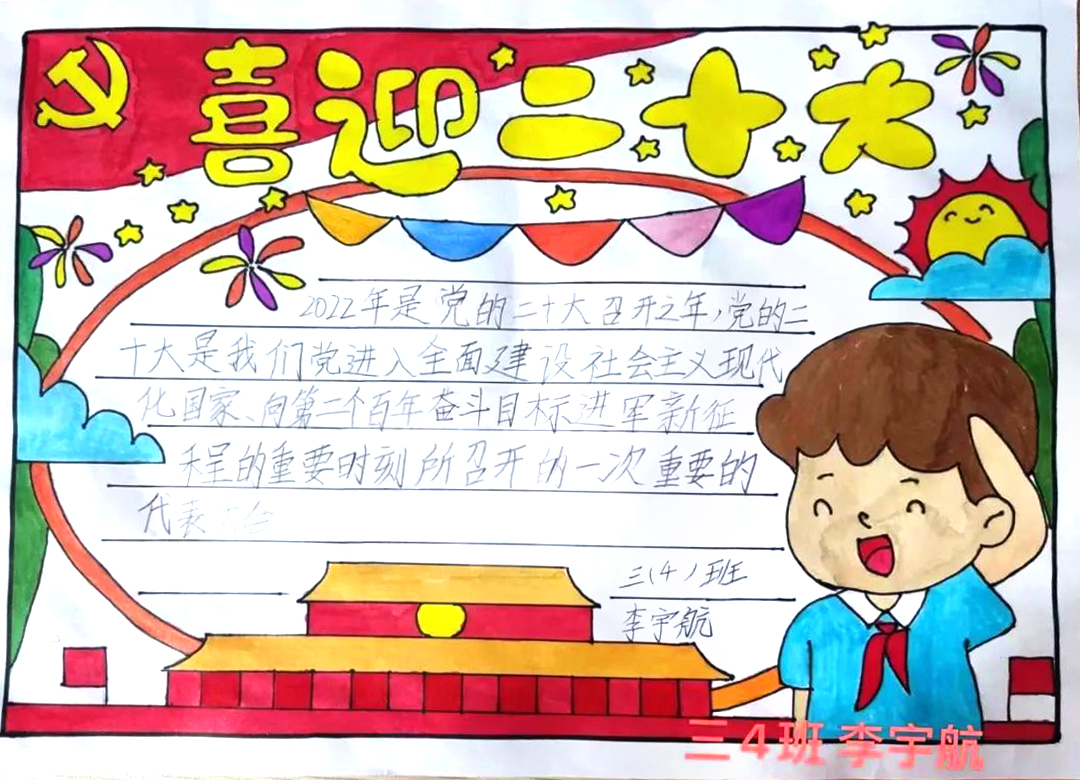 喜迎二十大
2022年是党的二十大召开之年，党的二
十大是我们党进入全面建设社会主义现代
化国家、向第二个百年奋斗目标进军新征
程的重要时刻所召开的一次重要的
代表大会
三（4）班
李宇航
三4班 李宇航